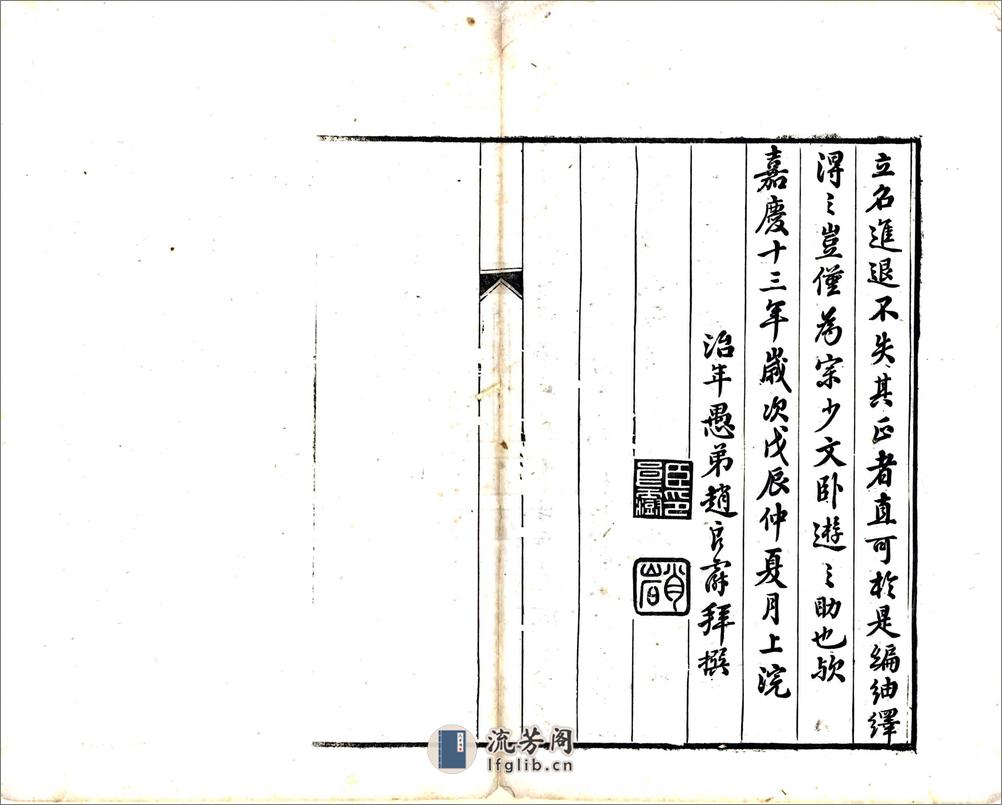 立名進退不失其正者直可於是編紬繹
得之豈僅為宗少文卧遊之助也歟
嘉慶十三年歲次戊辰仲夏月上浣
治年愚弟趙良霨拜撰
肖岩
流芳阁
lfglib.cn